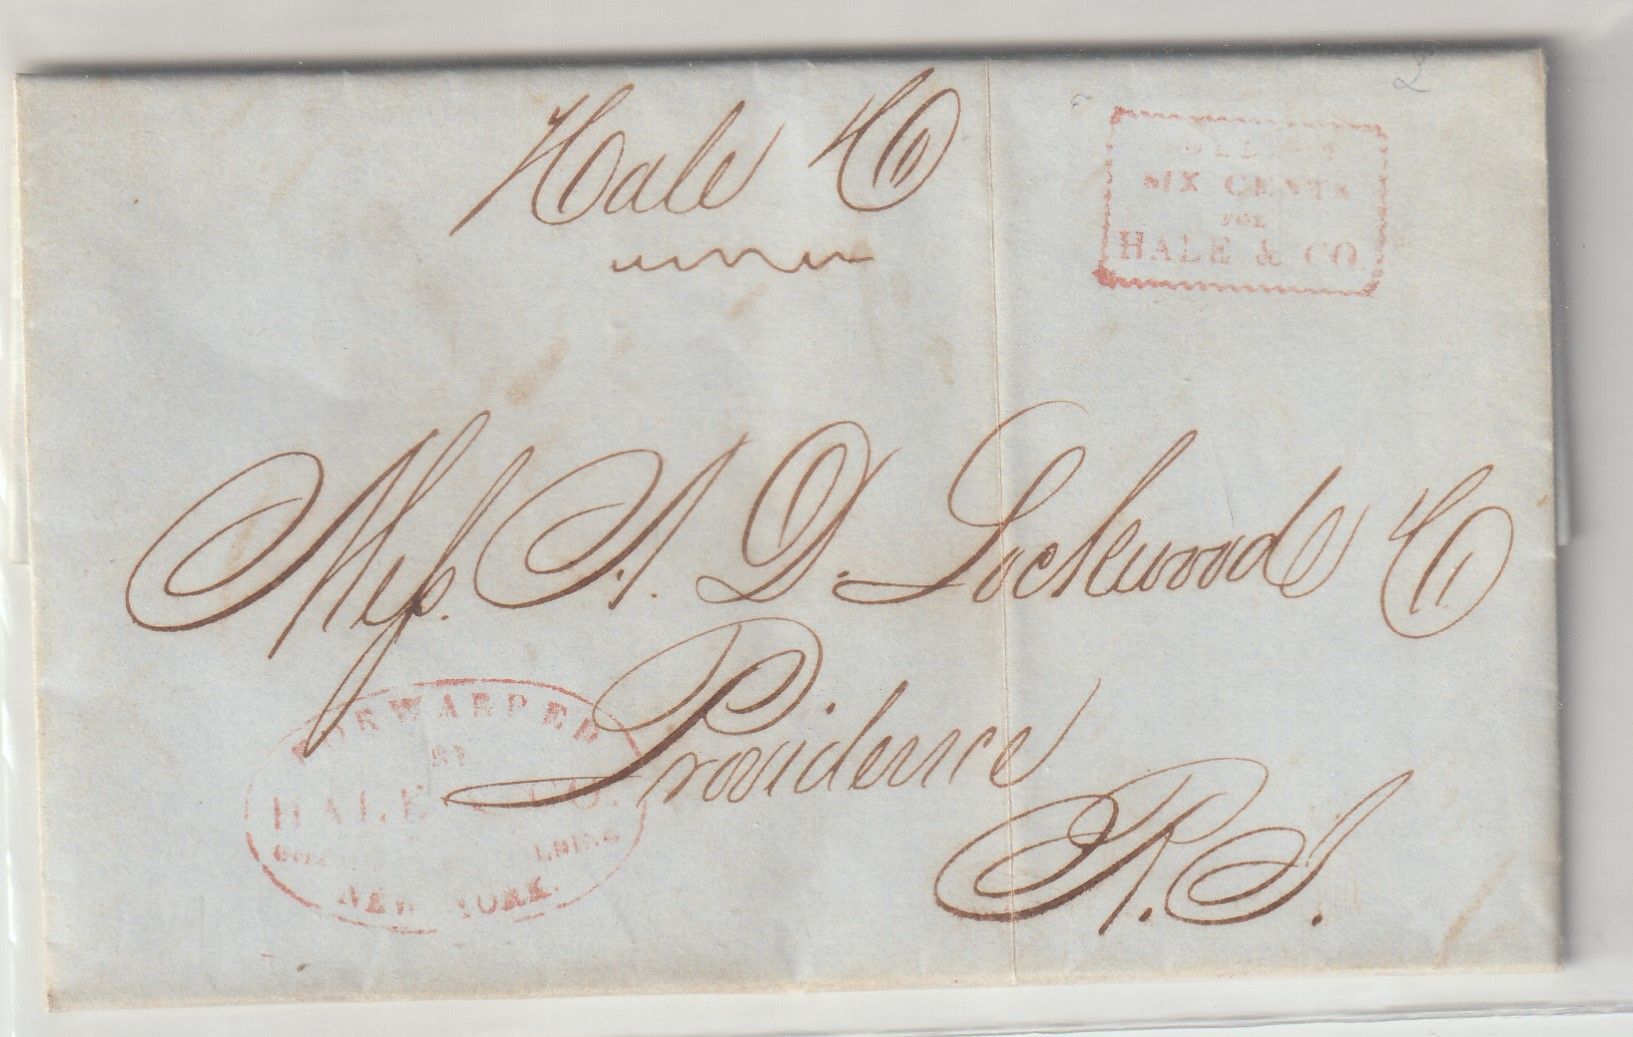 Hale & Co
SIX CENTS
FOR
HALE & CO.
Mess. A. D. Lockwood & Co
Providence
R. I.
FORWARDED
BY
HALE & CO.
NEW YORK.